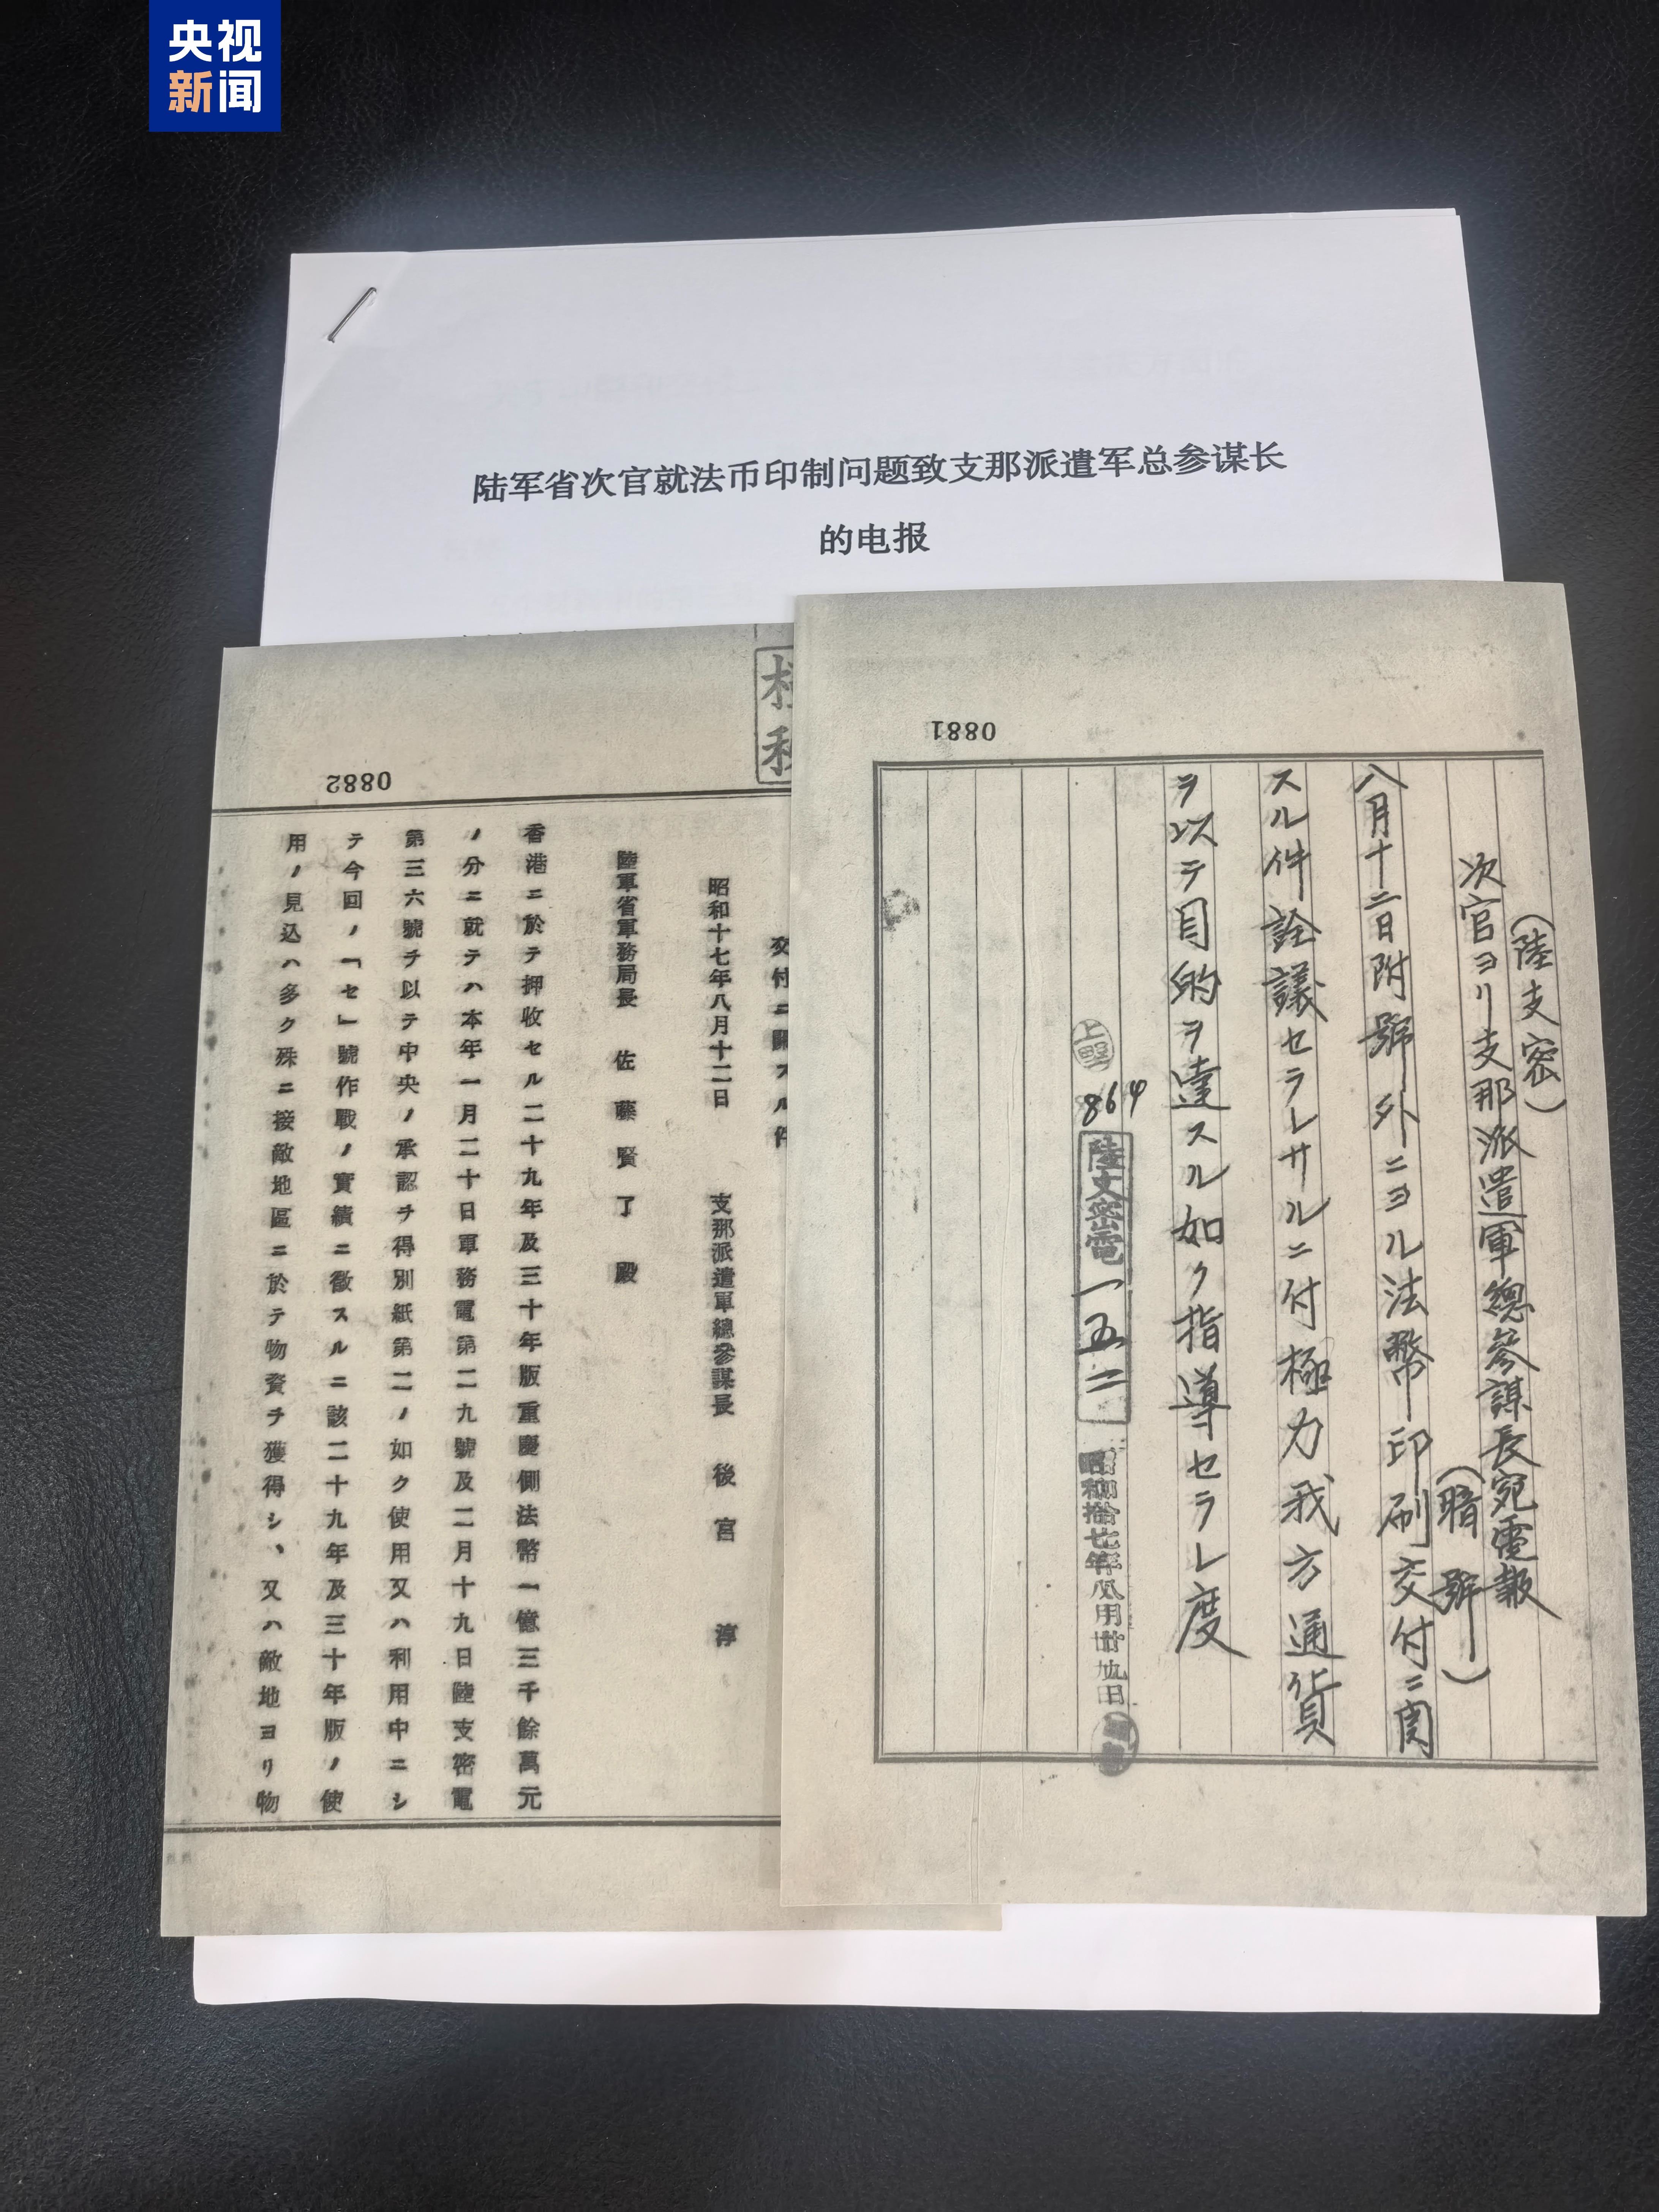 央视
新闻
陆军省次官就法币印制问题致支那派遣军总参谋长
的电报
0881
(陸支密)
次官ヨリ支那派遣軍總參謀長宛電報
(暗號)
八月十二日附號外ニヨル法幣印刷交付ニ関
スル件詮議セラレサルニ付極力我方通貨
ヲ以テ目的ヲ達スル如ク指導セラレ度
上野
864
陸支密電一五二
0882
昭和十七年八月十二日 支那派遣軍總參謀長 後宮 淳
陸軍省軍務局長 佐藤賢了殿
香港ニ於テ押收セル二十九年及三十年版重慶側法幣一億三千餘萬元
ノ分ニ就テハ本年一月二十日軍務電第二九號及二月十九日陸支密電
第三六號ヲ以テ中央ノ承認ヲ得別紙第二ノ如ク使用又ハ利用中ニシ
テ今回ノ「セ」號作戰ノ實績ニ徵スルニ該二十九年及三十年版ノ使
用ノ見込ハ多ク殊ニ接敵地區ニ於テ物資ヲ獲得シ、又ハ敵地ヨリ物